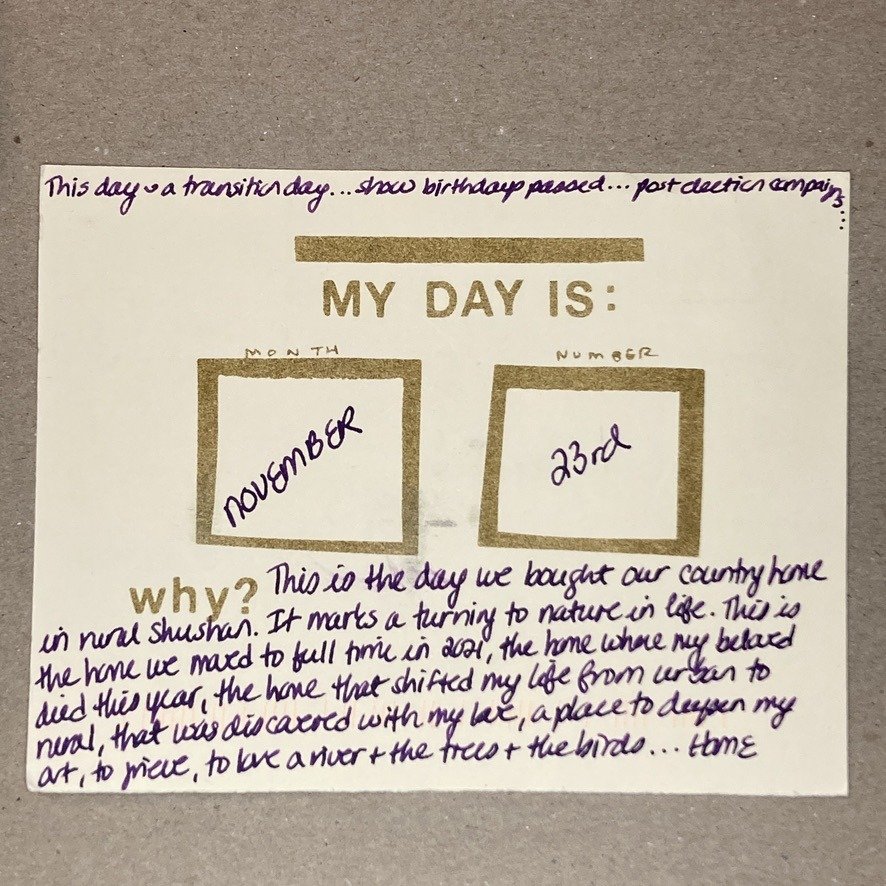 This day is a transition day... show birthdays passed... post election campaigns...
MY DAY IS:
MONTH
NUMBER
NOVEMBER
23rd
why? This is the day we bought our country home
in rural Shushan. It marks a turning to nature in life. This is
the home we moved to full time in 2021, the home where my beloved
died this year, the home that shifted my life from urban to
rural, that was discovered with my love, a place to deepen my
art, to grieve, to love a river + the trees + the birds... Home